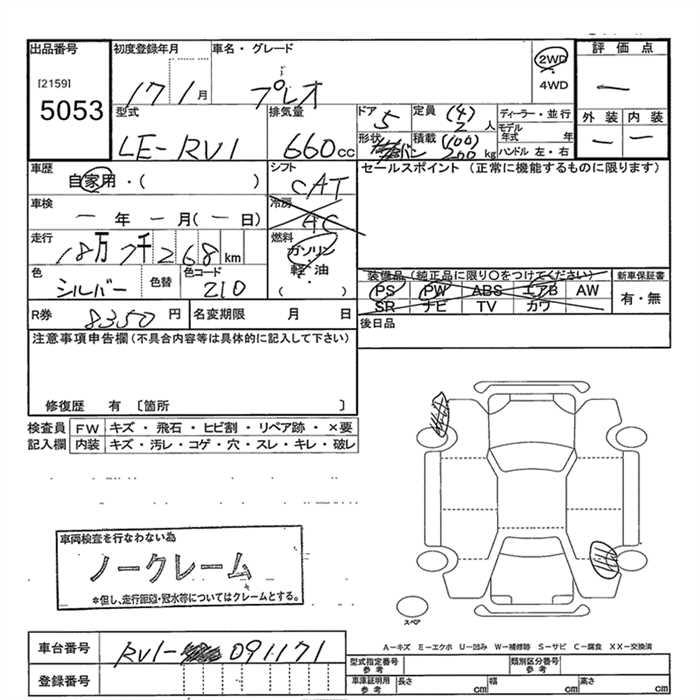 出品番号
[2159]
5053
初度登録年月
17 1月
車名・グレード
プレオ
2WD
4WD
評価点
一
外装 内装
一 一
型式
LE-RV1
排気量
660cc
ドア
5
定員 (4)
2人
形状
バン
積載 (100)
200kg
ディーラー・並行
モデル年式 年
ハンドル 左・右
車歴
自家用・( )
シフト
CAT
セールスポイント(正常に機能するものに限ります)
車検
一年 一月(一日)
冷房
AC
走行
18万7千268km
燃料
ガソリン
軽・油
( )
色
シルバー
色替
色コード
210
装備品(純正品に限り○をつけてください)
PS PW ABS エアB AW
SR ナビ TV カワ
新車保証書
有・無
R券 8350円
名変期限 月 日
後日品
注意事項申告欄(不具合内容等は具体的に記入して下さい)
修復歴 有 〔箇所 〕
検査員 FW キズ・飛石・ヒビ割・リペア跡・×要
記入欄 内装 キズ・汚レ・コゲ・穴・スレ・キレ・破レ
車両検査を行なわない為
ノークレーム
*但し、走行距離・冠水等についてはクレームとする。
スペア
A-キズ E-エクボ U-凹み W-補修跡 S-サビ C-腐食 XX-交換済
車台番号 RV1- 091171
登録番号
型式指定番号 参考
類別区分番号 参考
車庫証明用 参考 長さ cm 幅 cm 高さ cm